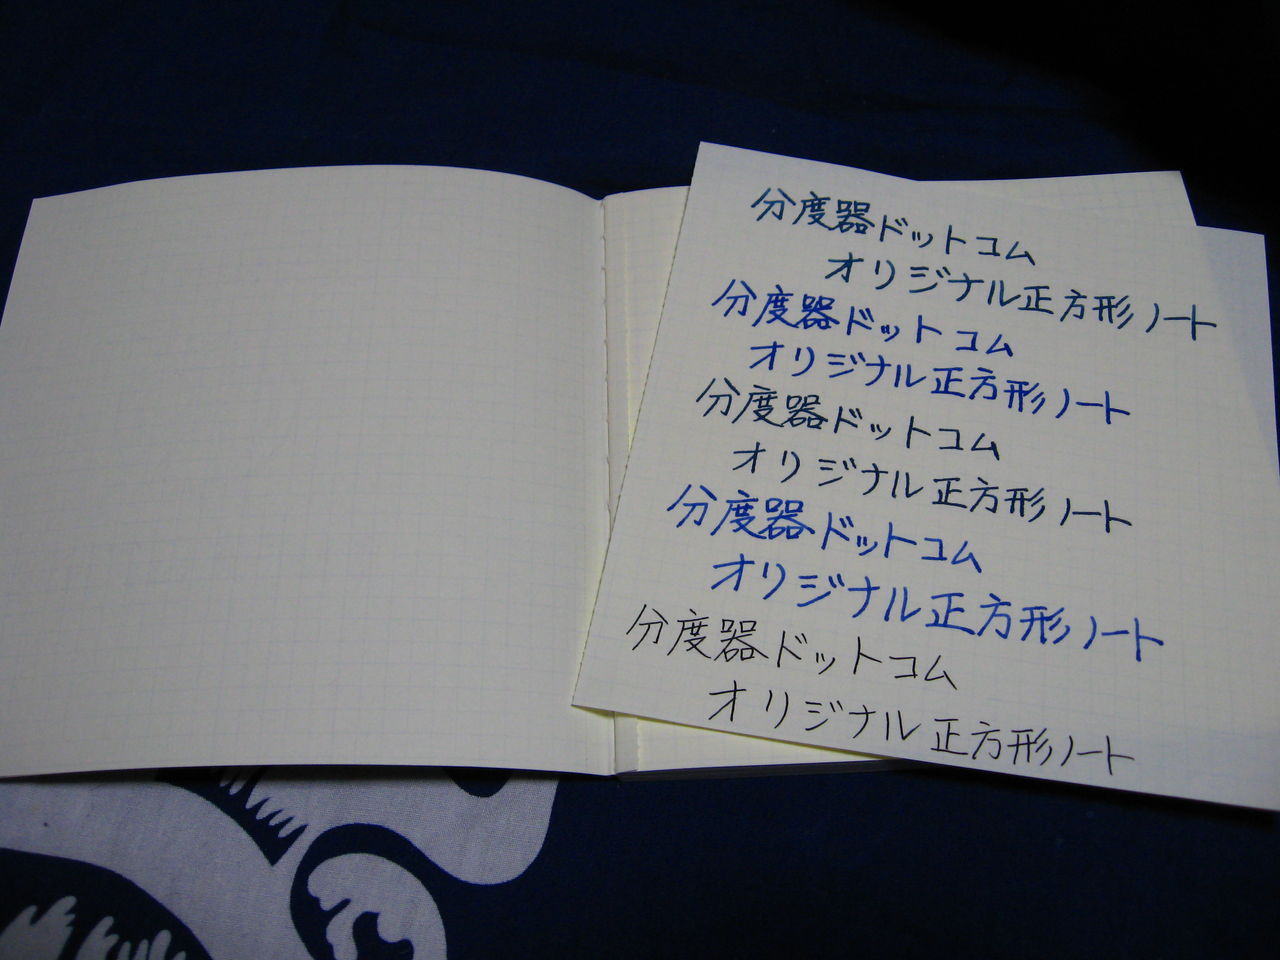 分度器ドットコム
オリジナル正方形ノート
分度器ドットコム
オリジナル正方形ノート
分度器ドットコム
オリジナル正方形ノート
分度器ドットコム
オリジナル正方形ノート
分度器ドットコム
オリジナル正方形ノート